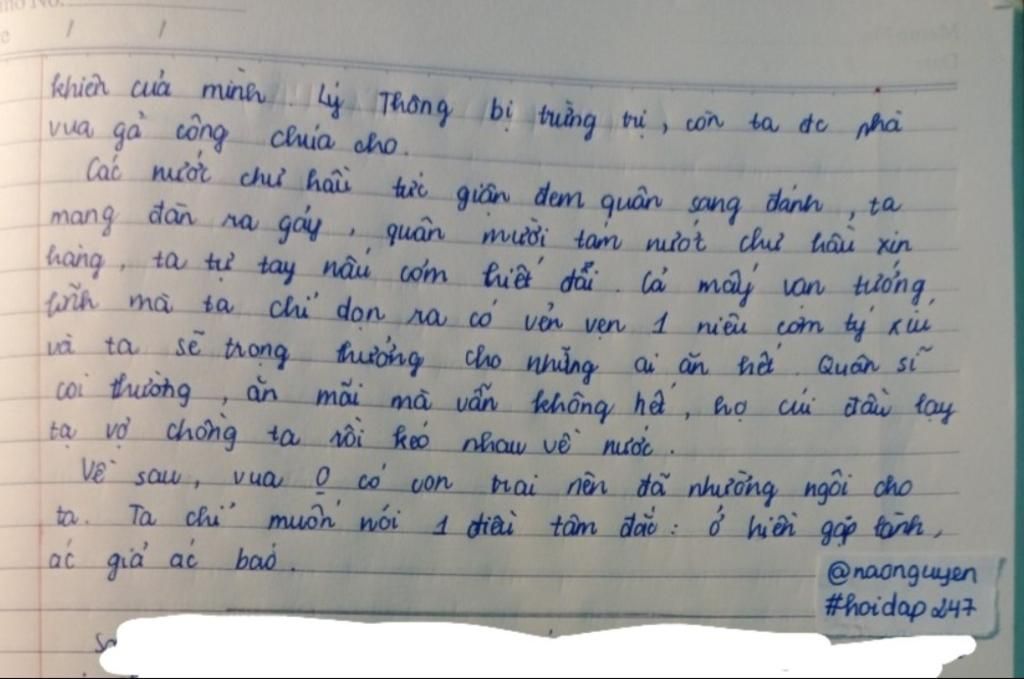 khiến của mình. Lý Thông bị trừng trị, còn ta đc nhà
vua gả công chúa cho.
Các nước chư hầu tức giận đem quân sang đánh, ta
mang đàn ra gảy, quân mười tám nước chư hầu xin
hàng, ta tự tay nấu cơm thiết đãi. Cả mấy vạn tướng,
lính mà ta chỉ dọn ra có vẻn vẹn 1 niêu cơm tý xíu
và ta sẽ trọng thưởng cho những ai ăn hết. Quân sĩ
coi thường, ăn mãi mà vẫn không hết, họ cúi đầu lạy
tạ vợ chồng ta rồi kéo nhau về nước.
Về sau, vua 0 có con trai nên đã nhường ngôi cho
ta. Ta chỉ muốn nói 1 điều tâm đắc: ở hiền gặp lành,
ác giả ác báo.
@naonguyen
#hoidap247